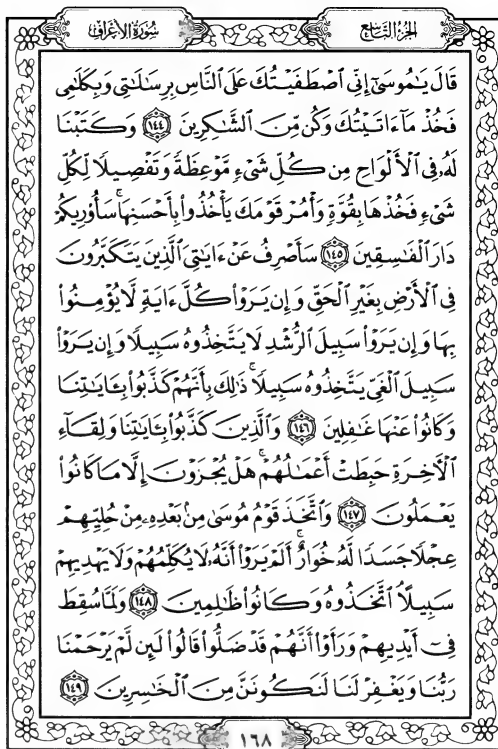 سُورَةُ الأَعْرَافِ الجُزْءُ التَّاسِعُ
قَالَ يَٰمُوسَىٰٓ إِنِّي ٱصْطَفَيْتُكَ عَلَى ٱلنَّاسِ بِرِسَٰلَٰتِي وَبِكَلَٰمِي
فَخُذْ مَآ ءَاتَيْتُكَ وَكُن مِّنَ ٱلشَّٰكِرِينَ ١٤٤ وَكَتَبْنَا
لَهُۥ فِي ٱلْأَلْوَاحِ مِن كُلِّ شَيْءٍ مَّوْعِظَةً وَتَفْصِيلًا لِّكُلِّ
شَيْءٍ فَخُذْهَا بِقُوَّةٍ وَأْمُرْ قَوْمَكَ يَأْخُذُوا۟ بِأَحْسَنِهَا ۚ سَأُو۟رِيكُمْ
دَارَ ٱلْفَٰسِقِينَ ١٤٥ سَأَصْرِفُ عَنْ ءَايَٰتِيَ ٱلَّذِينَ يَتَكَبَّرُونَ
فِي ٱلْأَرْضِ بِغَيْرِ ٱلْحَقِّ وَإِن يَرَوْا۟ كُلَّ ءَايَةٍ لَّا يُؤْمِنُوا۟
بِهَا وَإِن يَرَوْا۟ سَبِيلَ ٱلرُّشْدِ لَا يَتَّخِذُوهُ سَبِيلًا وَإِن يَرَوْا۟
سَبِيلَ ٱلْغَيِّ يَتَّخِذُوهُ سَبِيلًا ۚ ذَٰلِكَ بِأَنَّهُمْ كَذَّبُوا۟ بِـَٔايَٰتِنَا
وَكَانُوا۟ عَنْهَا غَٰفِلِينَ ١٤٦ وَٱلَّذِينَ كَذَّبُوا۟ بِـَٔايَٰتِنَا وَلِقَآءِ
ٱلْـَٔاخِرَةِ حَبِطَتْ أَعْمَٰلُهُمْ ۚ هَلْ يُجْزَوْنَ إِلَّا مَا كَانُوا۟
يَعْمَلُونَ ١٤٧ وَٱتَّخَذَ قَوْمُ مُوسَىٰ مِنۢ بَعْدِهِۦ مِنْ حُلِيِّهِمْ
عِجْلًا جَسَدًا لَّهُۥ خُوَارٌ ۚ أَلَمْ يَرَوْا۟ أَنَّهُۥ لَا يُكَلِّمُهُمْ وَلَا يَهْدِيهِمْ
سَبِيلًا ۘ ٱتَّخَذُوهُ وَكَانُوا۟ ظَٰلِمِينَ ١٤٨ وَلَمَّا سُقِطَ
فِيٓ أَيْدِيهِمْ وَرَأَوْا۟ أَنَّهُمْ قَدْ ضَلُّوا۟ قَالُوا۟ لَئِن لَّمْ يَرْحَمْنَا
رَبُّنَا وَيَغْفِرْ لَنَا لَنَكُونَنَّ مِنَ ٱلْخَٰسِرِينَ ١٤٩
١٦٨